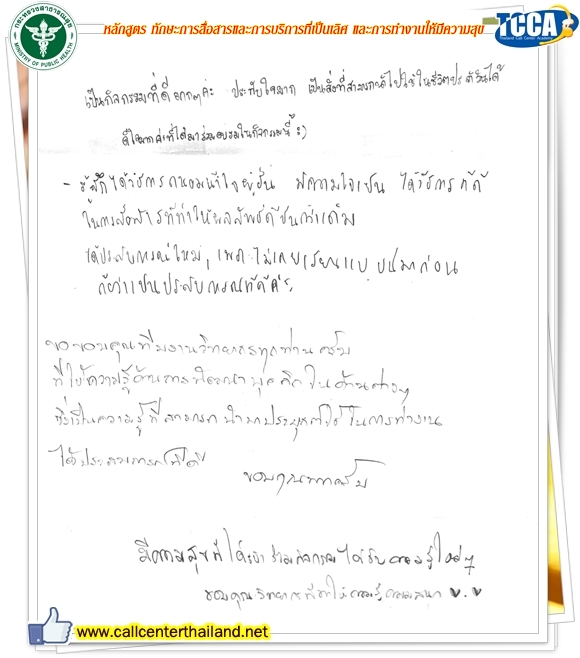 หลักสูตร ทักษะการสื่อสารและการบริการที่เป็นเลิศ และการทำงานให้มีความสุข
กระทรวงสาธารณสุข
MINISTRY OF PUBLIC HEALTH
TCCA
Thailand Call Center Academy
เป็นกิจกรรมที่ดีมากๆค่ะ ประทับใจมาก เป็นสิ่งที่สามารถนำไปใช้ในชีวิตประจำวันได้
ดีใจมากค่ะที่ได้มาร่วมอบรมในกิจกรรมนี้ :)
- รู้สึกได้วิธีการถนอมน้ำใจผู้อื่น มีความใจเย็น ได้วิธีการที่ดี
ในการสื่อสารที่ทำให้ผลลัพธ์ดีขึ้นกว่าเดิม
ได้ประสบการณ์ใหม่, เพราะไม่เคยเรียนแบบนี้มาก่อน
ถือว่าเป็นประสบการณ์ที่ดีค่ะ
ขอขอบคุณทีมงานวิทยากรทุกท่านครับ
ที่ให้ความรู้ด้านการพัฒนาบุคลิกในด้านต่างๆ
ซึ่งเป็นความรู้ที่สามารถนำมาประยุกต์ใช้ในการทำงาน
ได้ประสบการณ์ที่ดี
ขอบคุณมากครับ
มีความสุขที่ได้เข้าร่วมกิจกรรมได้รับความรู้ใหม่ๆ
ขอบคุณวิทยากรที่ให้ความรู้ความสนุก
www.callcenterthailand.net